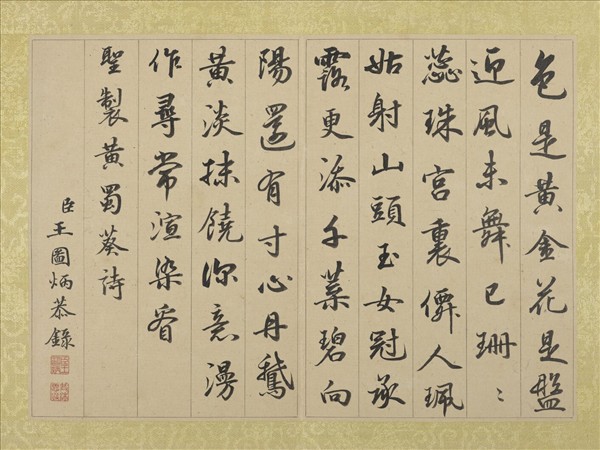 色是黃金花是盤
迎風未舞已珊〻
蕊珠宮裏僊人珮
姑射山頭玉女冠承
露更添千葉碧向
陽還有寸心丹鵞
黃淡抹饒深意漫
作尋常渲染看
聖製黃蜀葵詩
臣王圖炳恭錄